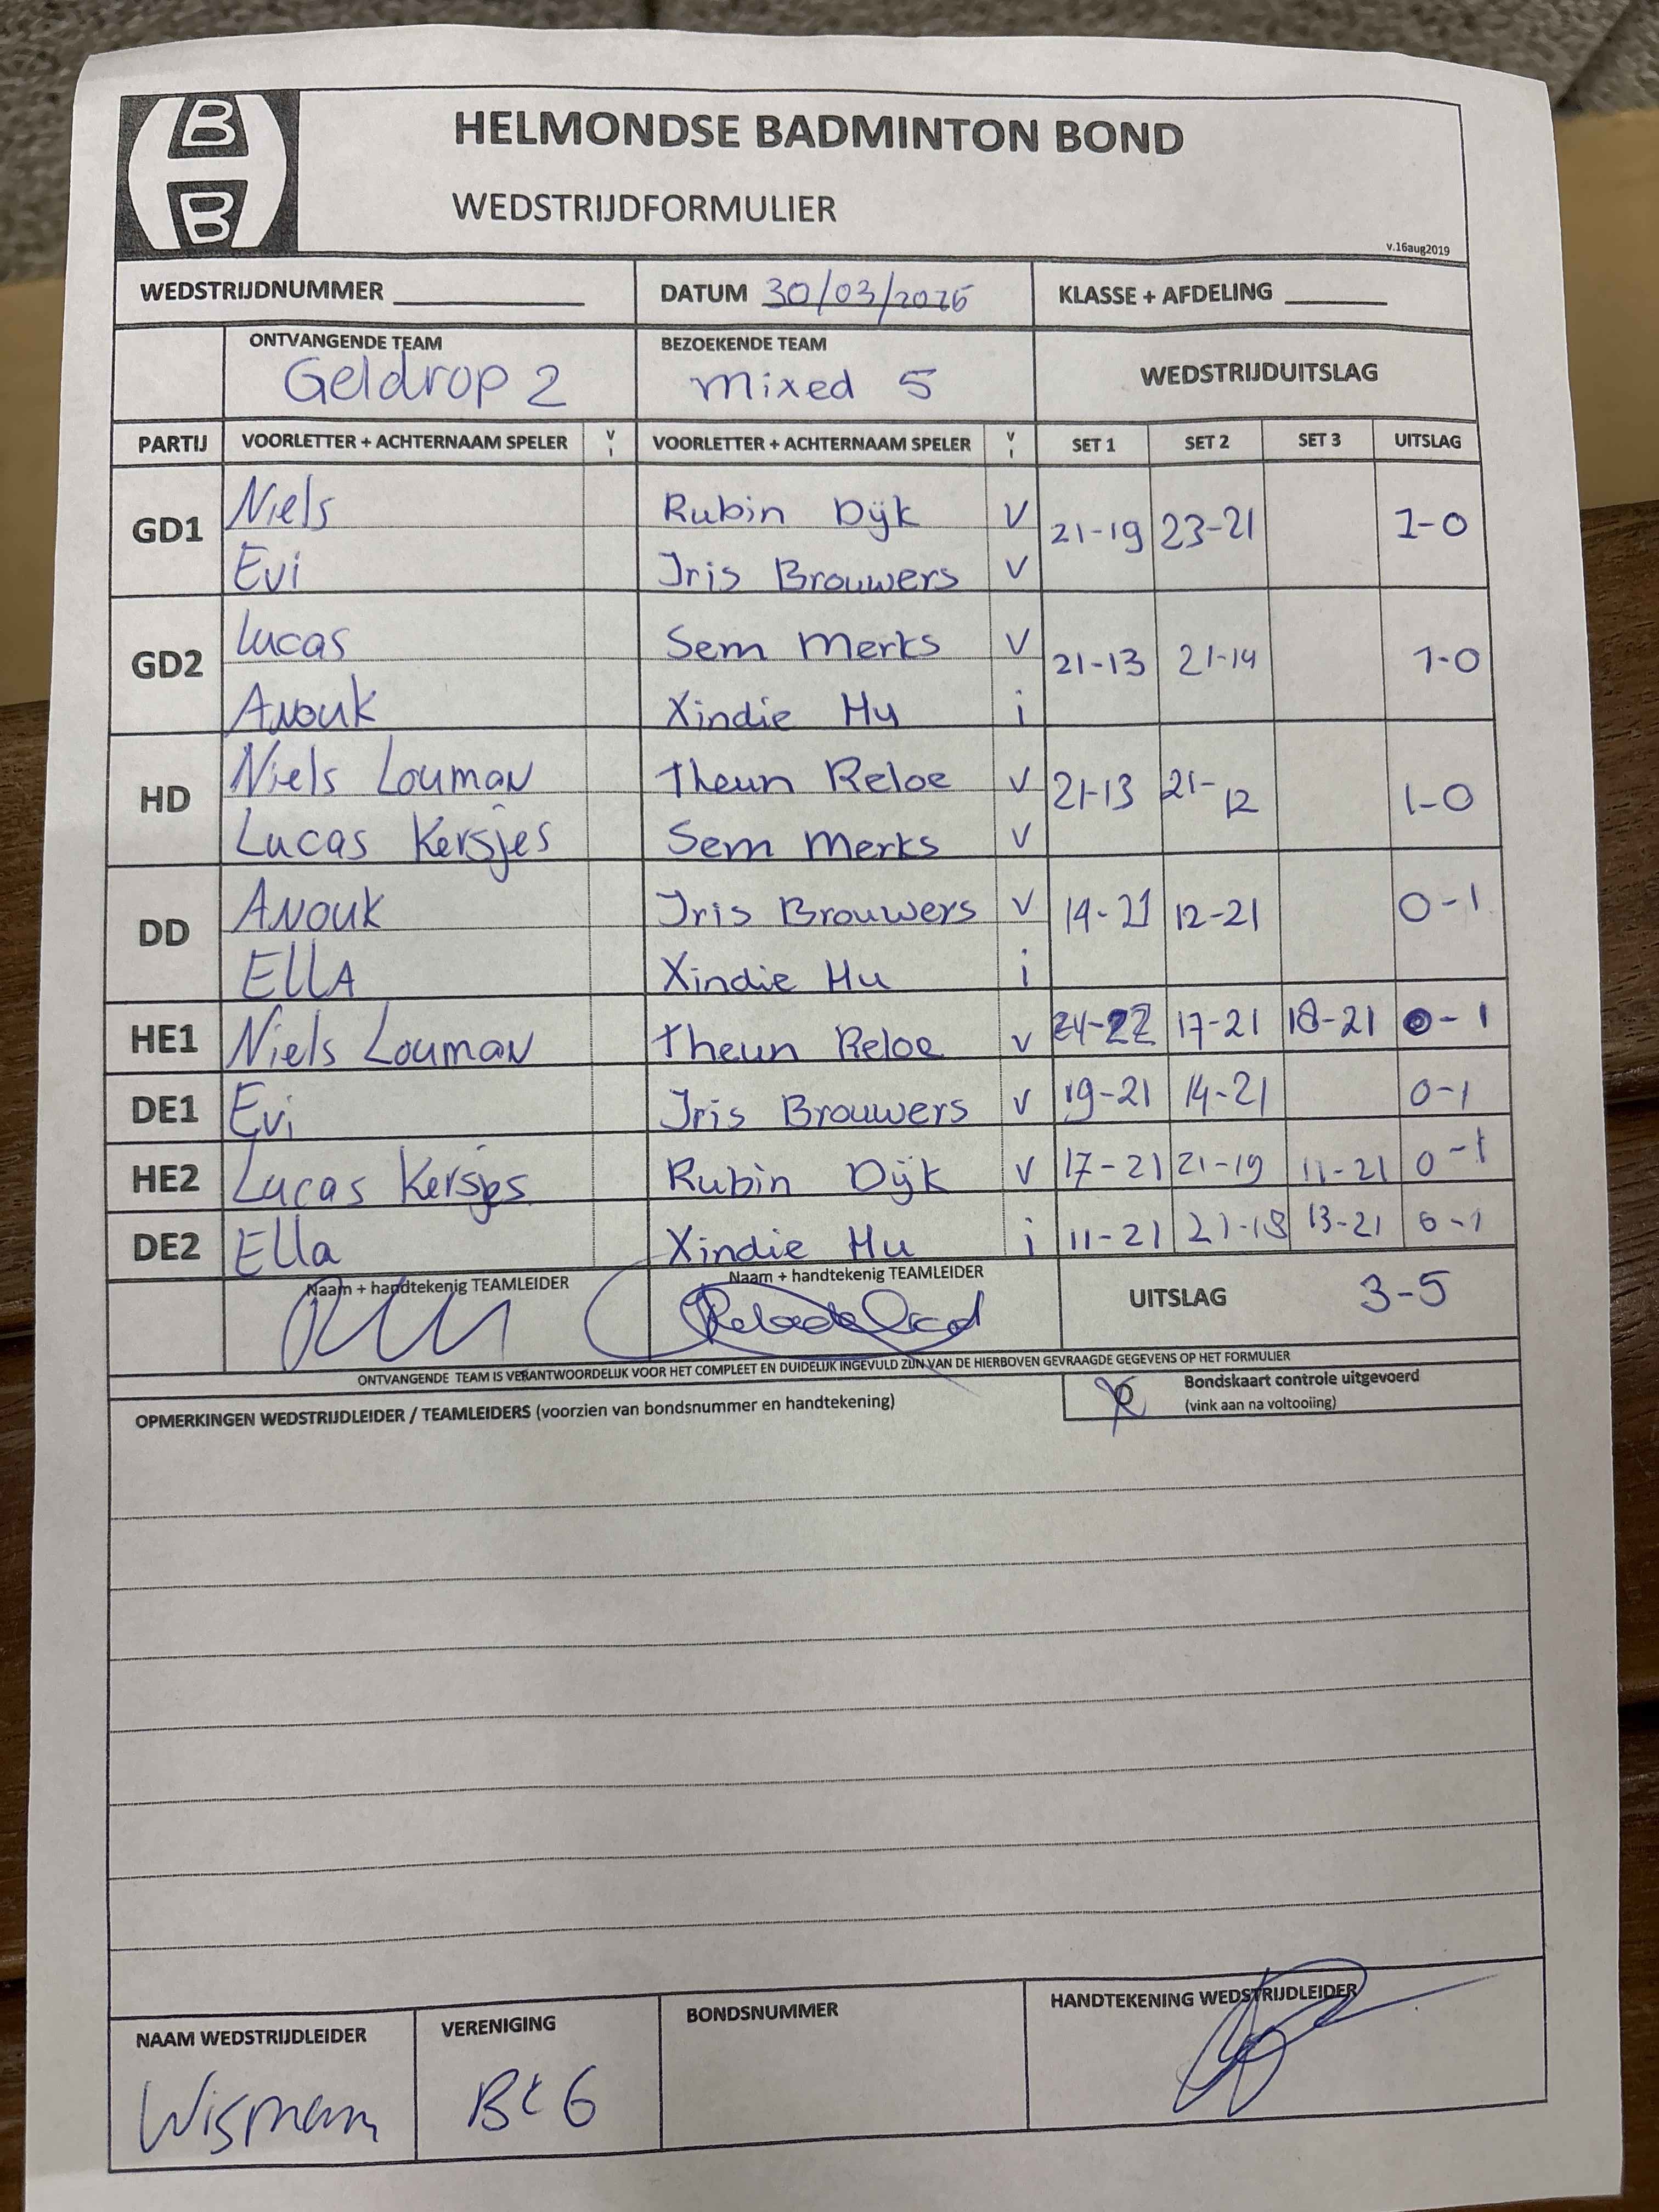 B
B
HELMONDSE BADMINTON BOND
WEDSTRIJDFORMULIER
v.16aug2019
WEDSTRIJDNUMMER DATUM 30/03/2026 KLASSE + AFDELING
ONTVANGENDE TEAM BEZOEKENDE TEAM WEDSTRIJDUITSLAG
Geldrop 2 Mixed 5
PARTIJ VOORLETTER + ACHTERNAAM SPELER V I VOORLETTER + ACHTERNAAM SPELER V I SET 1 SET 2 SET 3 UITSLAG
GD1 Niels Rubin Dijk V 21-19 23-21 1-0
Evi Iris Brouwers V
GD2 Lucas Sem Merks V 21-13 21-14 1-0
Anouk Xindie Hu i
HD Niels Louman Theun Reloe V 21-13 21-12 1-0
Lucas Kersjes Sem Merks V
DD Anouk Iris Brouwers V 14-21 12-21 0-1
ELLA Xindie Hu i
HE1 Niels Louman Theun Reloe V 24-22 17-21 18-21 0-1
DE1 Evi Iris Brouwers V 19-21 14-21 0-1
HE2 Lucas Kersjes Rubin Dijk V 17-21 21-19 11-21 0-1
DE2 Ella Xindie Hu i 11-21 21-18 13-21 0-1
Naam + handtekenig TEAMLEIDER Naam + handtekenig TEAMLEIDER UITSLAG 3-5
ONTVANGENDE TEAM IS VERANTWOORDELIJK VOOR HET COMPLEET EN DUIDELIJK INGEVULD ZIJN VAN DE HIERBOVEN GEVRAAGDE GEGEVENS OP HET FORMULIER
OPMERKINGEN WEDSTRIJDLEIDER / TEAMLEIDERS (voorzien van bondsnummer en handtekening)
Bondskaart controle uitgevoerd
(vink aan na voltooiing)
NAAM WEDSTRIJDLEIDER VERENIGING BONDSNUMMER HANDTEKENING WEDSTRIJDLEIDER
Wisman BCG